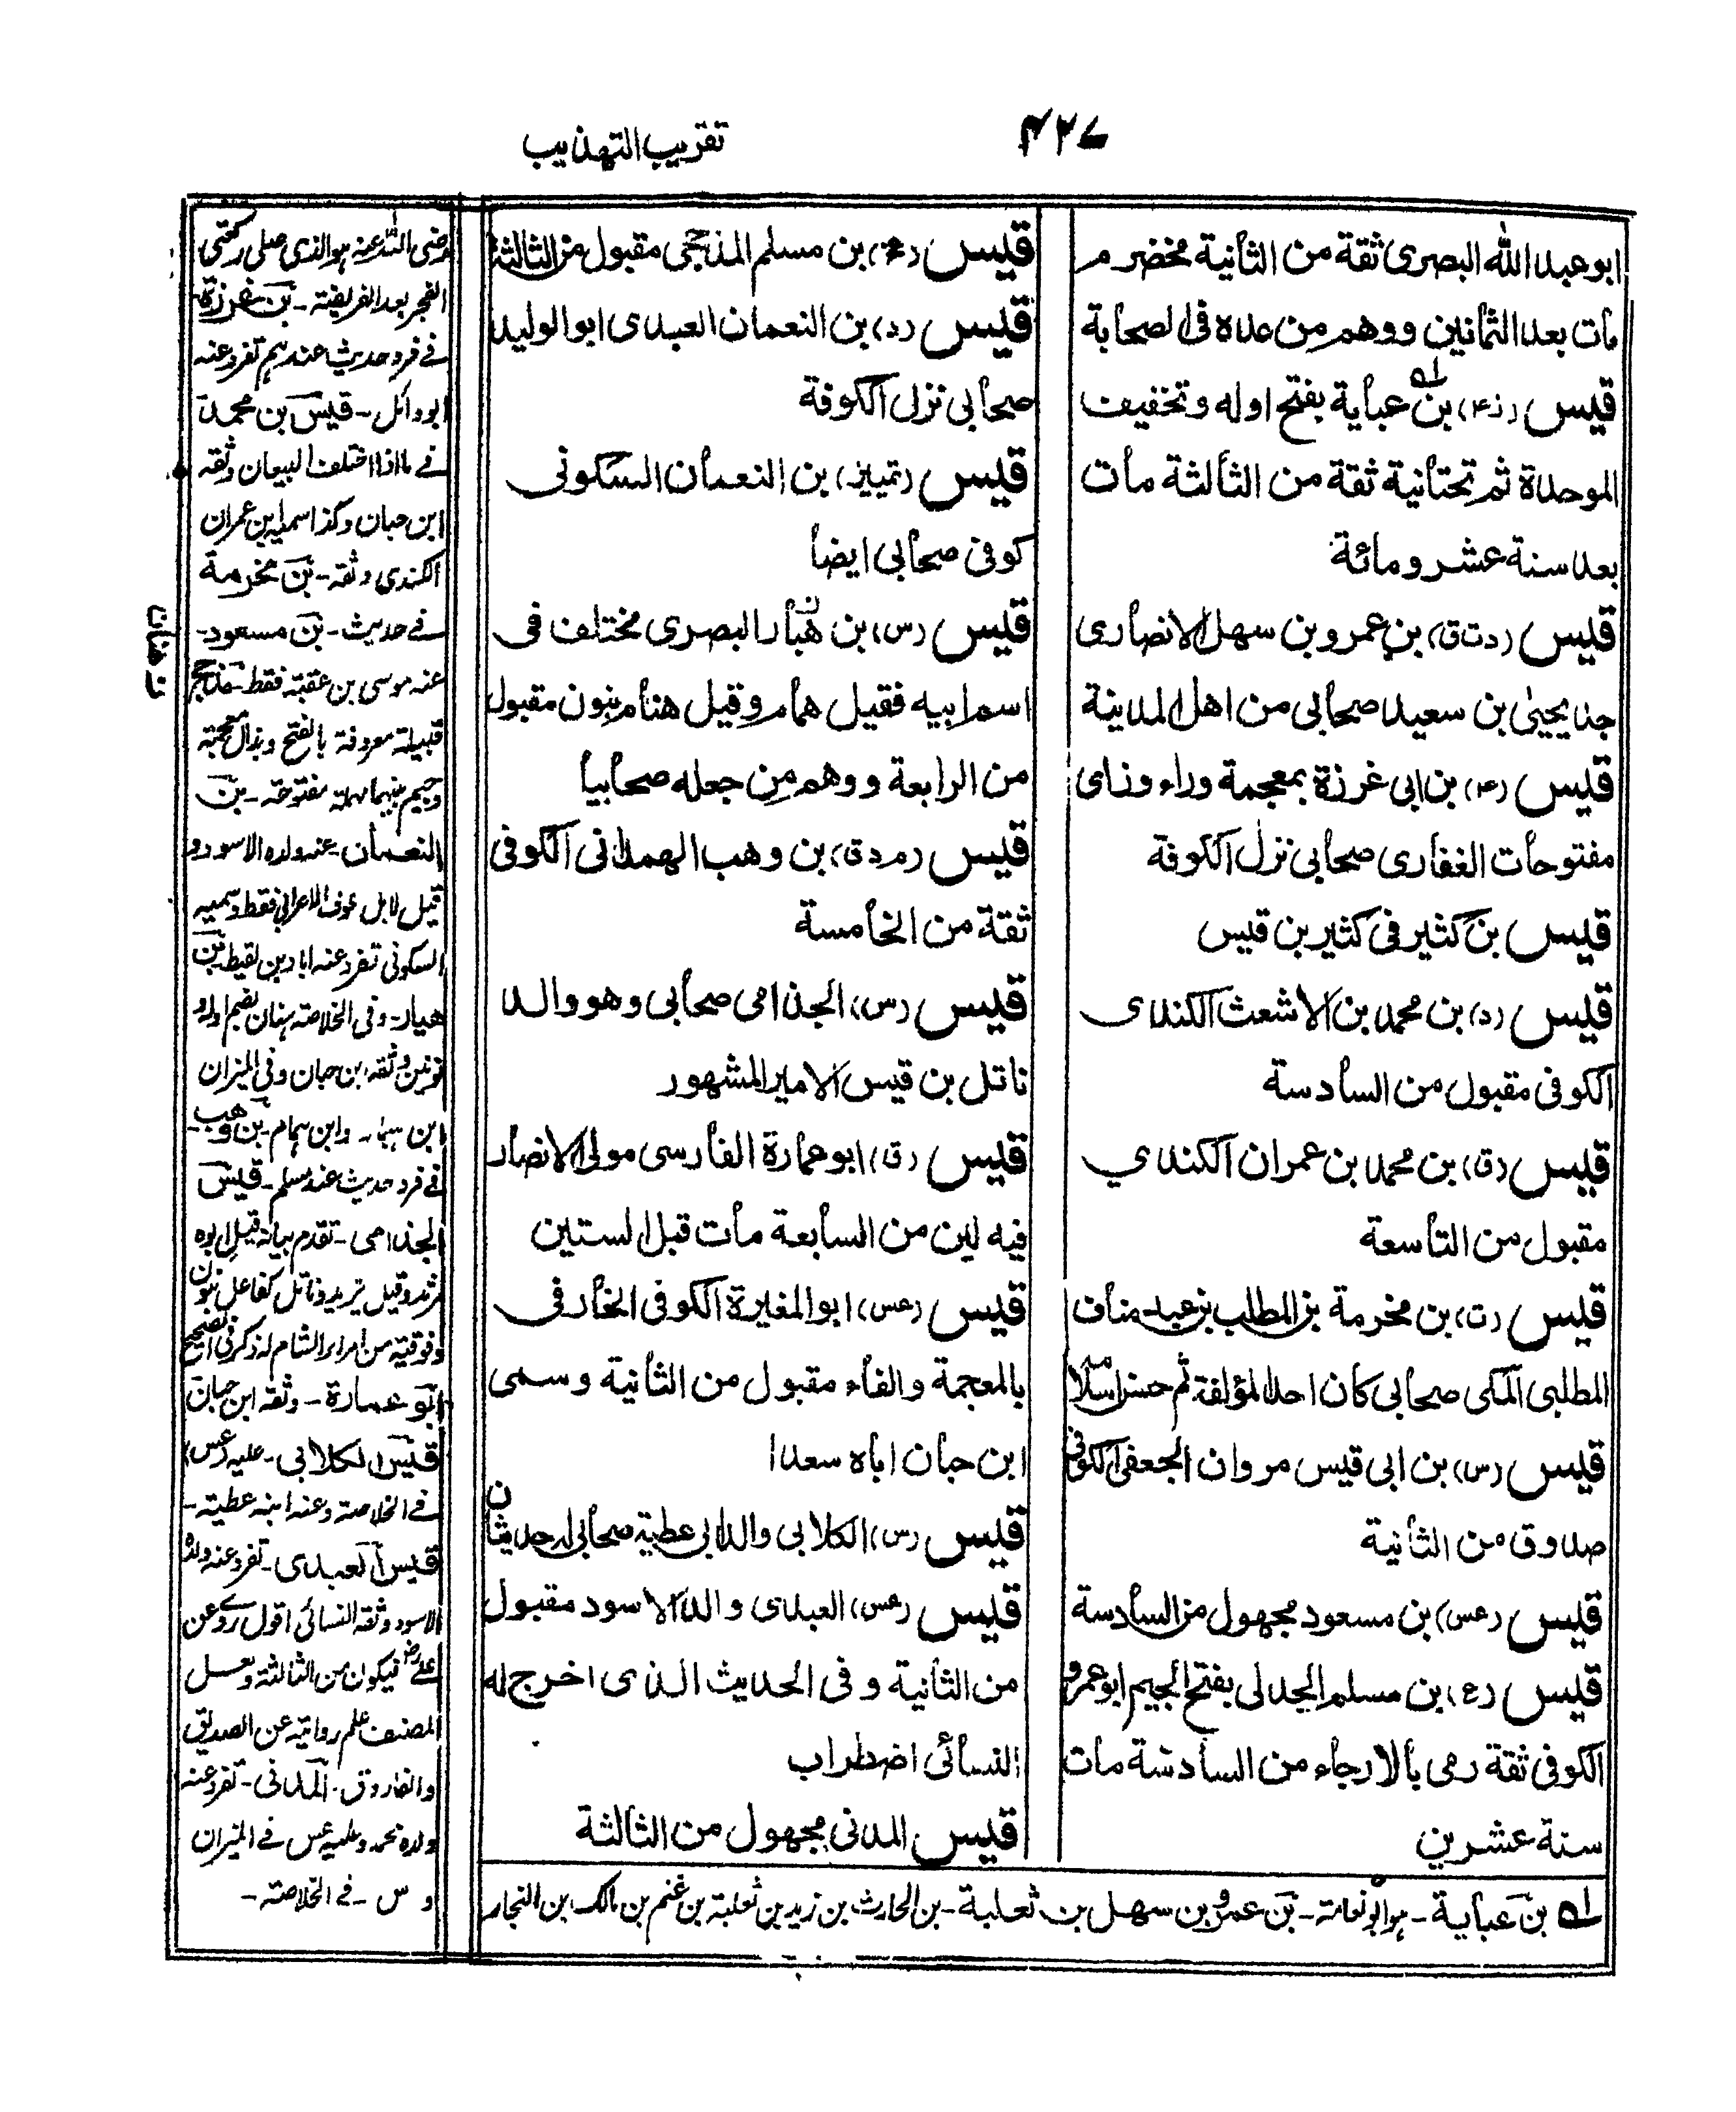 ۴۲۷
تقريب التهذيب
ابو عبد الله البصرى ثقة من الثانية مخضرم
مات بعد الثمانين ووهم من عده فى الصحابة
قيس (ز۴) بن عباية بفتح اوله وتخفيف
الموحدة ثم تحتانية ثقة من الثالثة مات
بعد سنة عشر ومائة
قيس (دت ق) بن عمرو بن سهل الانصارى
جد يحيىٰ بن سعيد صحابى من اهل المدينة
قيس (۴) بن ابى غرزة بمعجمة وراء وزاى
مفتوحات الغفارى صحابى نزل الكوفة
قيس بن كثير فى كثير بن قيس
قيس (د) بن محمد بن الاشعث الكندى
الكوفى مقبول من السادسة
قيس (ق) بن محمد بن عمران الكندي
مقبول من التاسعة
قيس (ت) بن مخرمة بن المطلب بن عبد مناف
المطلبى المكى صحابى كان احد المؤلفة ثم حسن اسلامه
قيس (س) بن ابى قيس مروان الجعفى الكوفى
صدوق من الثانية
قيس (عس) بن مسعود مجهول من السادسة
قيس (ع) بن مسلم الجدلى بفتح الجيم ابو عمرو
الكوفى ثقة رمى بالارجاء من السادسة مات
سنة عشرين
قيس بن مسلم المذحجى مقبول من الثالثة
قيس (د) بن النعمان العبدى ابو الوليد
صحابى نزل الكوفة
قيس (تمييز) بن النعمان السكونى
كوفى صحابى ايضا
قيس (س) بن هبار البصرى مختلف فى
اسم ابيه فقيل همام وقيل هنام بنون مقبول
من الرابعة ووهم من جعله صحابيا
قيس (م د ق) بن وهب الهمدانى الكوفى
ثقة من الخامسة
قيس (س) الجذامى صحابى وهو والد
ناتل بن قيس الامير المشهور
قيس (ق) ابو عمارة الفارسى مولى الانصار
فيه لين من السابعة مات قبل الستين
قيس (عس) ابو المغيرة الكوفى الخارفى
بالمعجمة والفاء مقبول من الثانية وسمى
ابن حبان اباه سعدا
قيس (س) الكلابى والد ابى عطية صحابى له حديثان
قيس (عس) العبدى والد الاسود مقبول
من الثانية وفى الحديث الذى اخرج له
النسائى اضطراب
قيس المدنى مجهول من الثالثة
رضى الله عنه هو الذى صلى ركعتى
الفجر بعد الفريضة - بن غرزة
فے فرد حديث عندهم تفرد عنه
ابو وائل - قيس بن محمد
فے ما اذا اختلف البيعان وثقه
ابن حبان وكذا سميه ابن عمران
الكندى وثقه - بن مخرمة
فے حديث - بن مسعود -
عنه موسى بن عقبة فقط - مذحج
قبيلة معروفة بالفتح وبذال معجمة
وجيم بينهما مهملة مفتوحة - بن
النعمان - عنه ولده الاسود و
قيل لا بل عوف الاعرابى فقط وسميه
السكونى تفرد عنه اياد بن لقيط بن
هبار - وفى الخلاصة هنان بضم اوله و
نونين وثقه ابن حبان وفى الميزان
ابن هبار - وابن همام - بن وهب -
فے فرد حديث عند مسلم - قيس
الجذامى - تقدم بيانه قيل ابوه
وقيل يزيد وناتل كفاعل بنون
وفوقية من امراء الشام له ذكر فى الصحيح
ابو عمارة - وثقه ابن حبان
قيس الكلابى - عليه (عس)
فے الخلاصة وعنه ابنه عطية -
قيس العبدى - تفرد عنه ولده
الاسود وثقه النسائى اقول روى عن
على رض فيكون من الثالثة ولعل
المصنف علم روايته عن الصديق
والفاروق - المدنى - تفرد عنه
ولده محمد وعليه عس فے الميزان
و س - فے الخلاصة -
بن عباية - هو ابو نعامة - بن عمرو بن سهل بن ثعلبة - بن الحارث بن زيد بن ثعلبة بن غنم بن مالك بن النجار